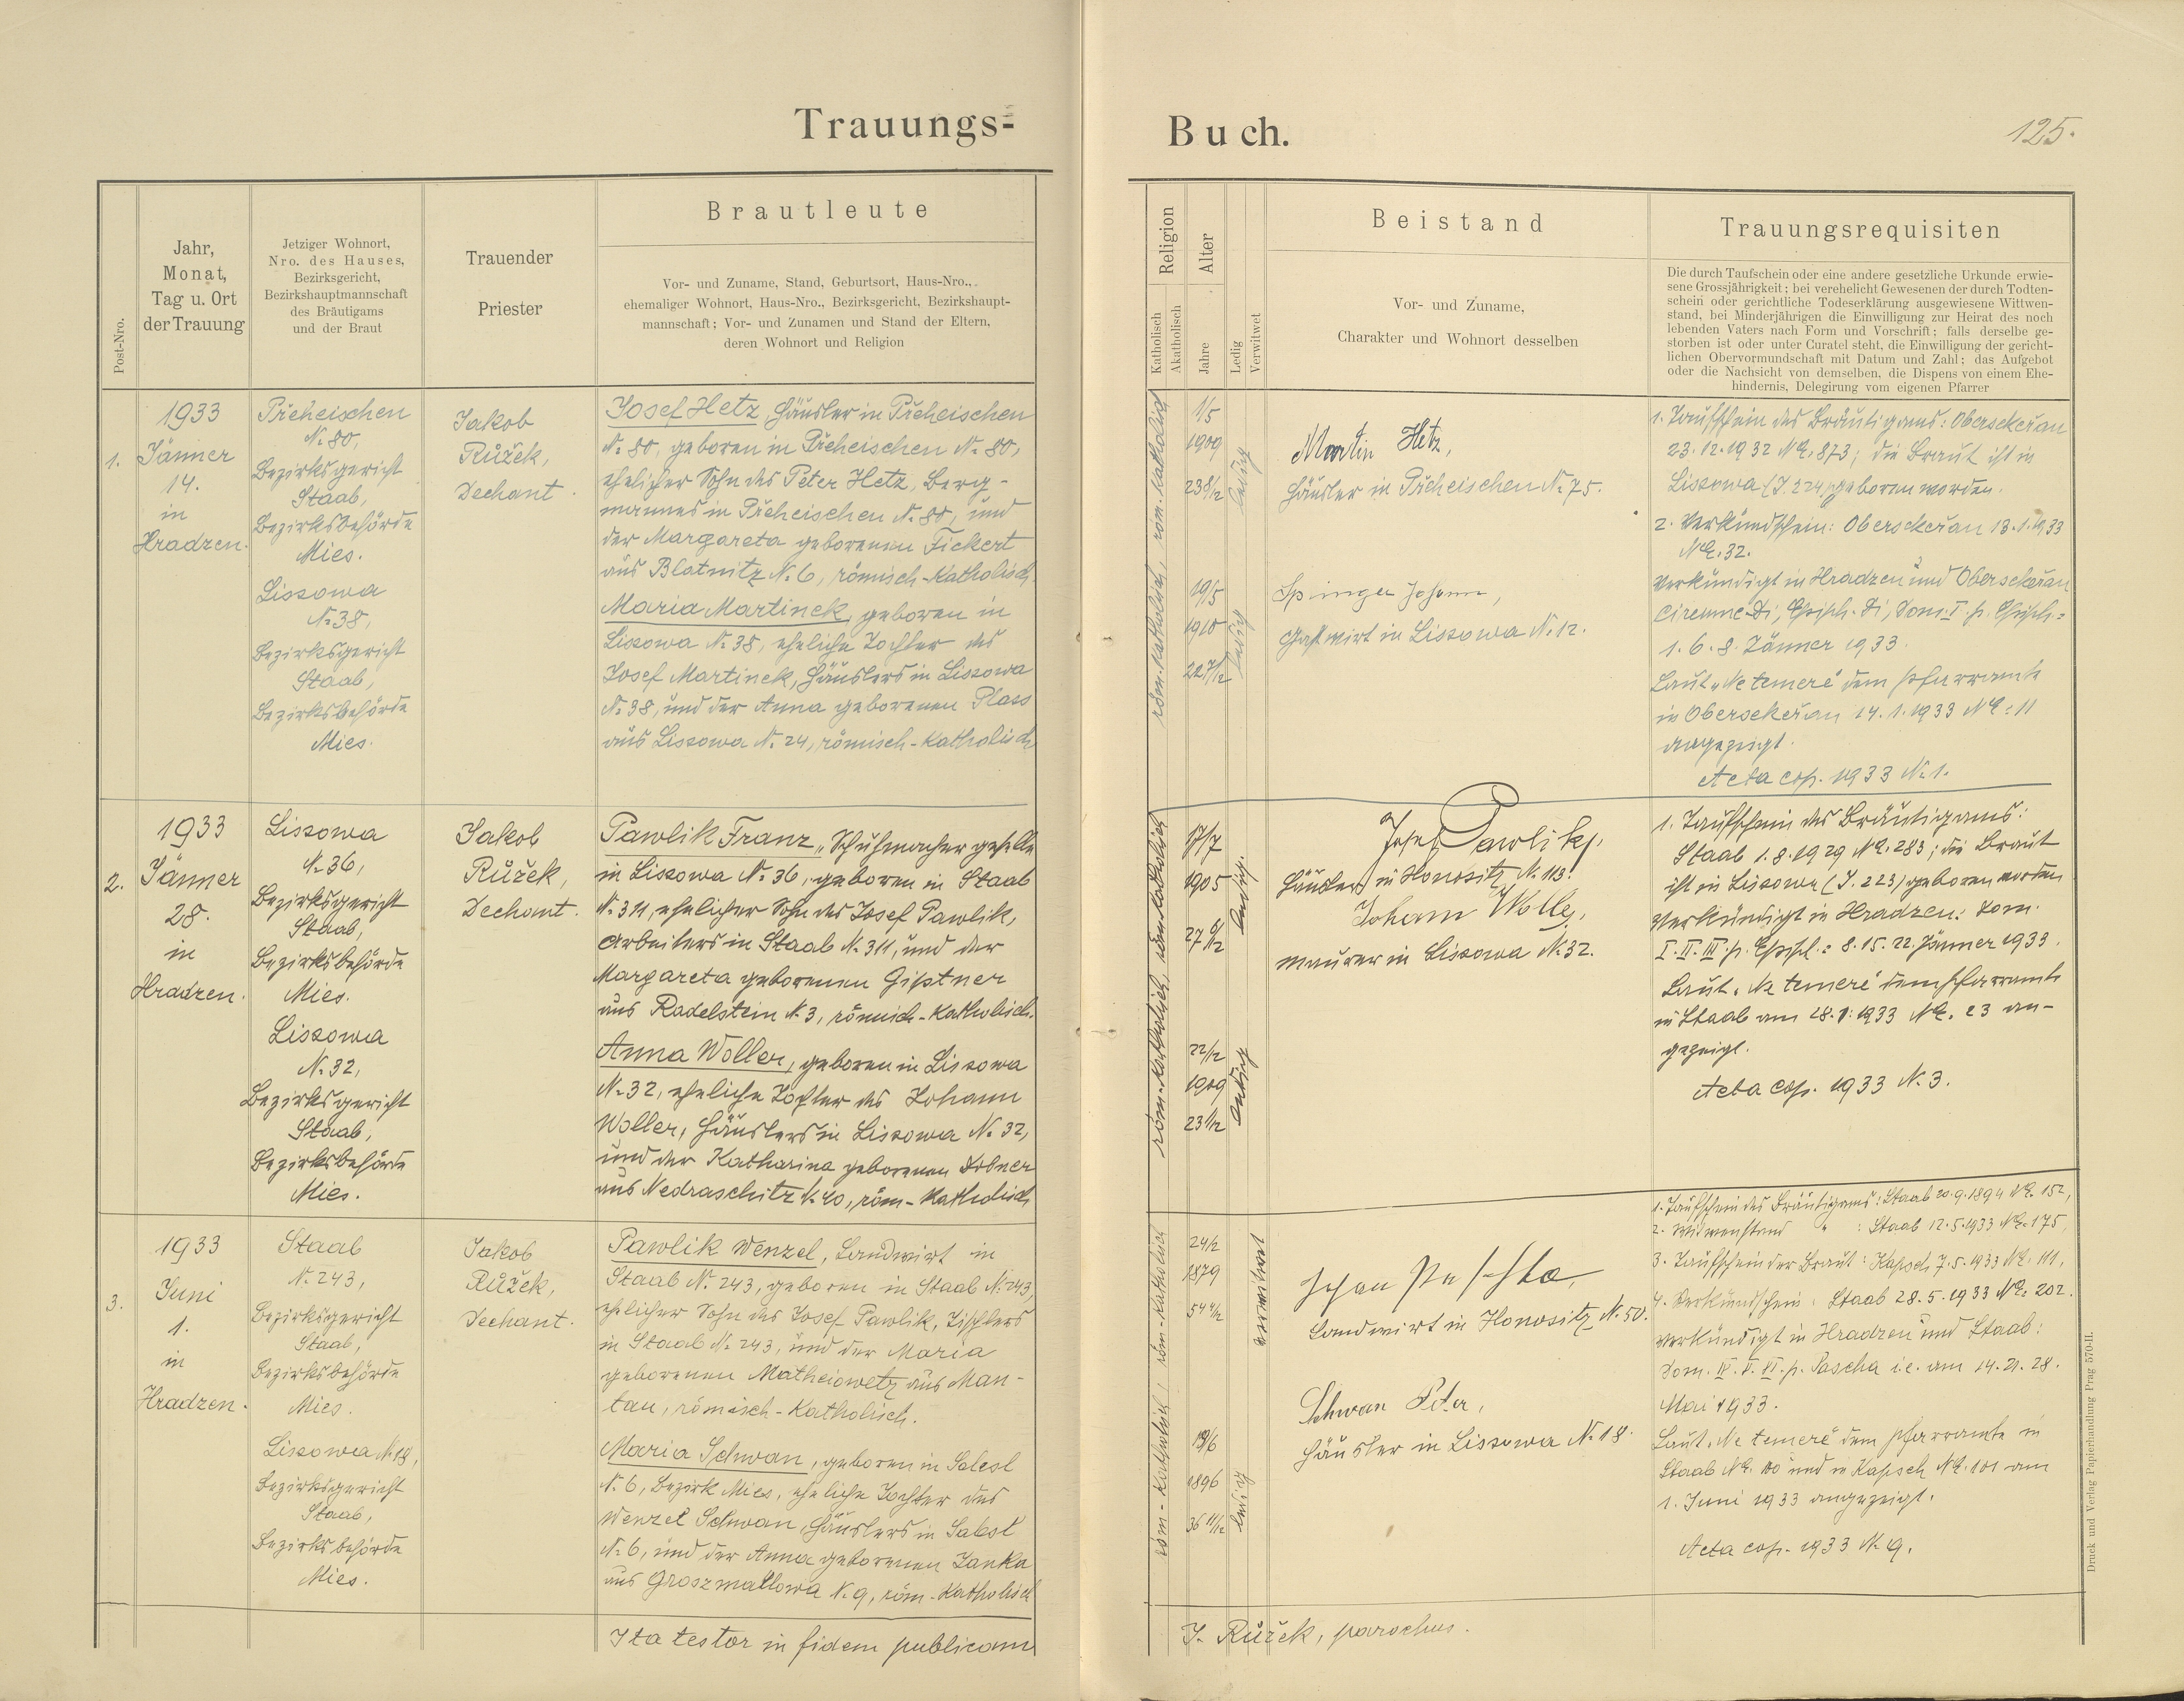 Trauungs-
Buch.
125.
Post-Nro.
Jahr,
Monat,
Tag u. Ort
der Trauung
Jetziger Wohnort,
Nro. des Hauses,
Bezirksgericht,
Bezirkshauptmannschaft
des Bräutigams
und der Braut
Trauender
Priester
Brautleute
Vor- und Zuname, Stand, Geburtsort, Haus-Nro.,
ehemaliger Wohnort, Haus-Nro., Bezirksgericht, Bezirkshaupt-
mannschaft; Vor- und Zunamen und Stand der Eltern,
deren Wohnort und Religion
Religion
Katholisch
Akatholisch
Alter
Jahre
Ledig
Verwitwet
Beistand
Vor- und Zuname,
Charakter und Wohnort desselben
Trauungsrequisiten
Die durch Taufschein oder eine andere gesetzliche Urkunde erwie-
sene Grossjährigkeit; bei verehelicht Gewesenen der durch Todten-
schein oder gerichtliche Todeserklärung ausgewiesene Wittwen-
stand, bei Minderjährigen die Einwilligung zur Heirat des noch
lebenden Vaters nach Form und Vorschrift; falls derselbe ge-
storben ist oder unter Curatel steht, die Einwilligung der gericht-
lichen Obervormundschaft mit Datum und Zahl; das Aufgebot
oder die Nachsicht von demselben, die Dispens von einem Ehe-
hindernis, Delegirung vom eigenen Pfarrer
1.
1933
Jänner
14.
in
Hradzen.
Přeheischen
N. 80,
Bezirksgericht
Staab,
Bezirksbehörde
Mies.
Lissowa
N. 38,
Bezirksgericht
Staab,
Bezirksbehörde
Mies.
Jakob
Růžek,
Dechant.
Josef Hetz, Häusler in Přeheischen
N. 80, geboren in Přeheischen N. 80,
ehelicher Sohn des Peter Hetz, Berg-
mannes in Přeheischen N. 80, und
der Margareta geborenen Fickert
aus Blatnitz N. 6, römisch-katholisch.
Maria Martinek, geboren in
Lissowa N. 38, eheliche Tochter des
Josef Martinek, Häuslers in Lissowa
N. 38, und der Anna geborenen Plass
aus Lissowa N. 24, römisch-katholisch
röm.-katholisch, röm.-katholisch
1/5
1909
23 8/12
ledig
19/5
1910
22 7/12
ledig
Martin Hetz,
Häusler in Přeheischen N. 75.
Springer Johann,
Gastwirt in Lissowa N. 12.
1. Taufschein des Bräutigams: Obersekeřan
23.12.1932 NE. 873; die Braut ist in
Lissowa (J. 224) geboren worden.
2. Verkündschein: Obersekeřan 13.1.1933
NE. 32.
Verkündigt in Hradzen und Obersekeřan
Circumc. Di, Epiph. Di, Dom. I. p. Epiph.:
1. 6. 8. Jänner 1933.
Laut "Ne temere" dem Pfarramte
in Obersekeřan 14.1.1933 NE: 11
angezeigt.
Acta cop. 1933 N. 1.
2.
1933
Jänner
28.
in
Hradzen.
Lissowa
N. 36,
Bezirksgericht
Staab,
Bezirksbehörde
Mies.
Lissowa
N. 32,
Bezirksgericht
Staab,
Bezirksbehörde
Mies.
Jakob
Růžek,
Dechant.
Pawlik Franz, Schuhmachergeselle
in Lissowa N. 36, geboren in Staab
N. 311, ehelicher Sohn des Josef Pawlik,
Arbeiters in Staab N. 311, und der
Margareta geborenen Gistner
aus Radelstein N. 3, römisch-katholisch.
Anna Woller, geboren in Lissowa
N. 32, eheliche Tochter des Johann
Woller, Häuslers in Lissowa N. 32,
und der Katharina geborenen Dobner
aus Nedraschitz N. 40, röm-katholisch
röm.-katholisch, röm.-katholisch
17/7
1905
27 6/12
ledig.
22/12
1909
23 1/12
ledig
Josef Pawlik,
Häusler in Honositz N. 113.
Johann Woller,
Maurer in Lissowa N. 32.
1. Taufschein des Bräutigams:
Staab 1.8.1929 NE. 283; die Braut
ist in Lissowa (J. 223) geboren worden
Verkündigt in Hradzen: Dom.
I. II. III. p. Epiph.: 8. 15. 22. Jänner 1933.
Laut "Ne temere" dem Pfarramte
in Staab am 28.1.1933 NE. 23 an-
gezeigt.
Acta cop. 1933 N. 3.
3.
1933
Juni
1.
in
Hradzen.
Staab
N. 243,
Bezirksgericht
Staab,
Bezirksbehörde
Mies.
Lissowa N. 18,
Bezirksgericht
Staab,
Bezirksbehörde
Mies.
Jakob
Růžek,
Dechant.
Pawlik Wenzel, Landwirt in
Staab N. 243, geboren in Staab N. 243,
ehelicher Sohn des Josef Pawlik, Tischlers
in Staab N. 243, und der Maria
geborenen Matheiowetz aus Man-
tau, römisch-katholisch.
Maria Schwan, geboren in Salesl
N. 6, Bezirk Mies, eheliche Tochter des
Wenzel Schwan, Häuslers in Salesl
N. 6, und der Anna geborenen Janka
aus Groszmallowa N. 9, röm-katholisch
röm-katholisch, röm-katholisch
24/2
1879
54 4/12
verwitwet
1896
36 11/12
ledig
Landwirt in Honositz N. 50.
Schwan Peter,
Häusler in Lissowa N. 18.
1. Taufschein des Bräutigams: Staab 20.9.1894 NE. 152,
2. Witwenstand " : Staab 12.5.1933 NE: 175,
3. Taufschein der Braut: Kapsch 7.5.1933 NE. 111,
4. Verkündschein: Staab 28.5.1933 NE: 202.
Verkündigt in Hradzen und Staab:
Dom. IV. V. VI. p. Pascha i.e. am 14. 21. 28.
Mai 1933.
Laut "Ne temere" dem Pfarramte in
Staab NE. 100 und in Kapsch NE. 101 am
1. Juni 1933 angezeigt.
Acta cop. 1933 N. 9.
Ita testor in fidem publicam
J. Růžek, parochus.
Druck und Verlag Papierhandlung Prag 570-II.